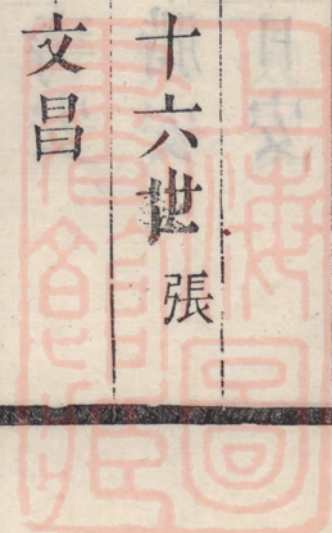 十六世 張
文昌